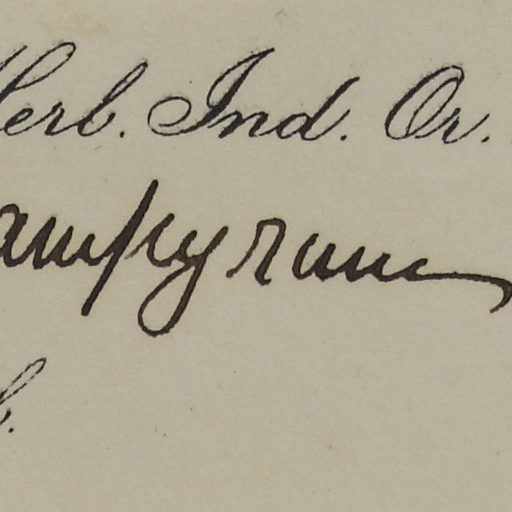 Herb. Ind. Or.
ampyrum
b.